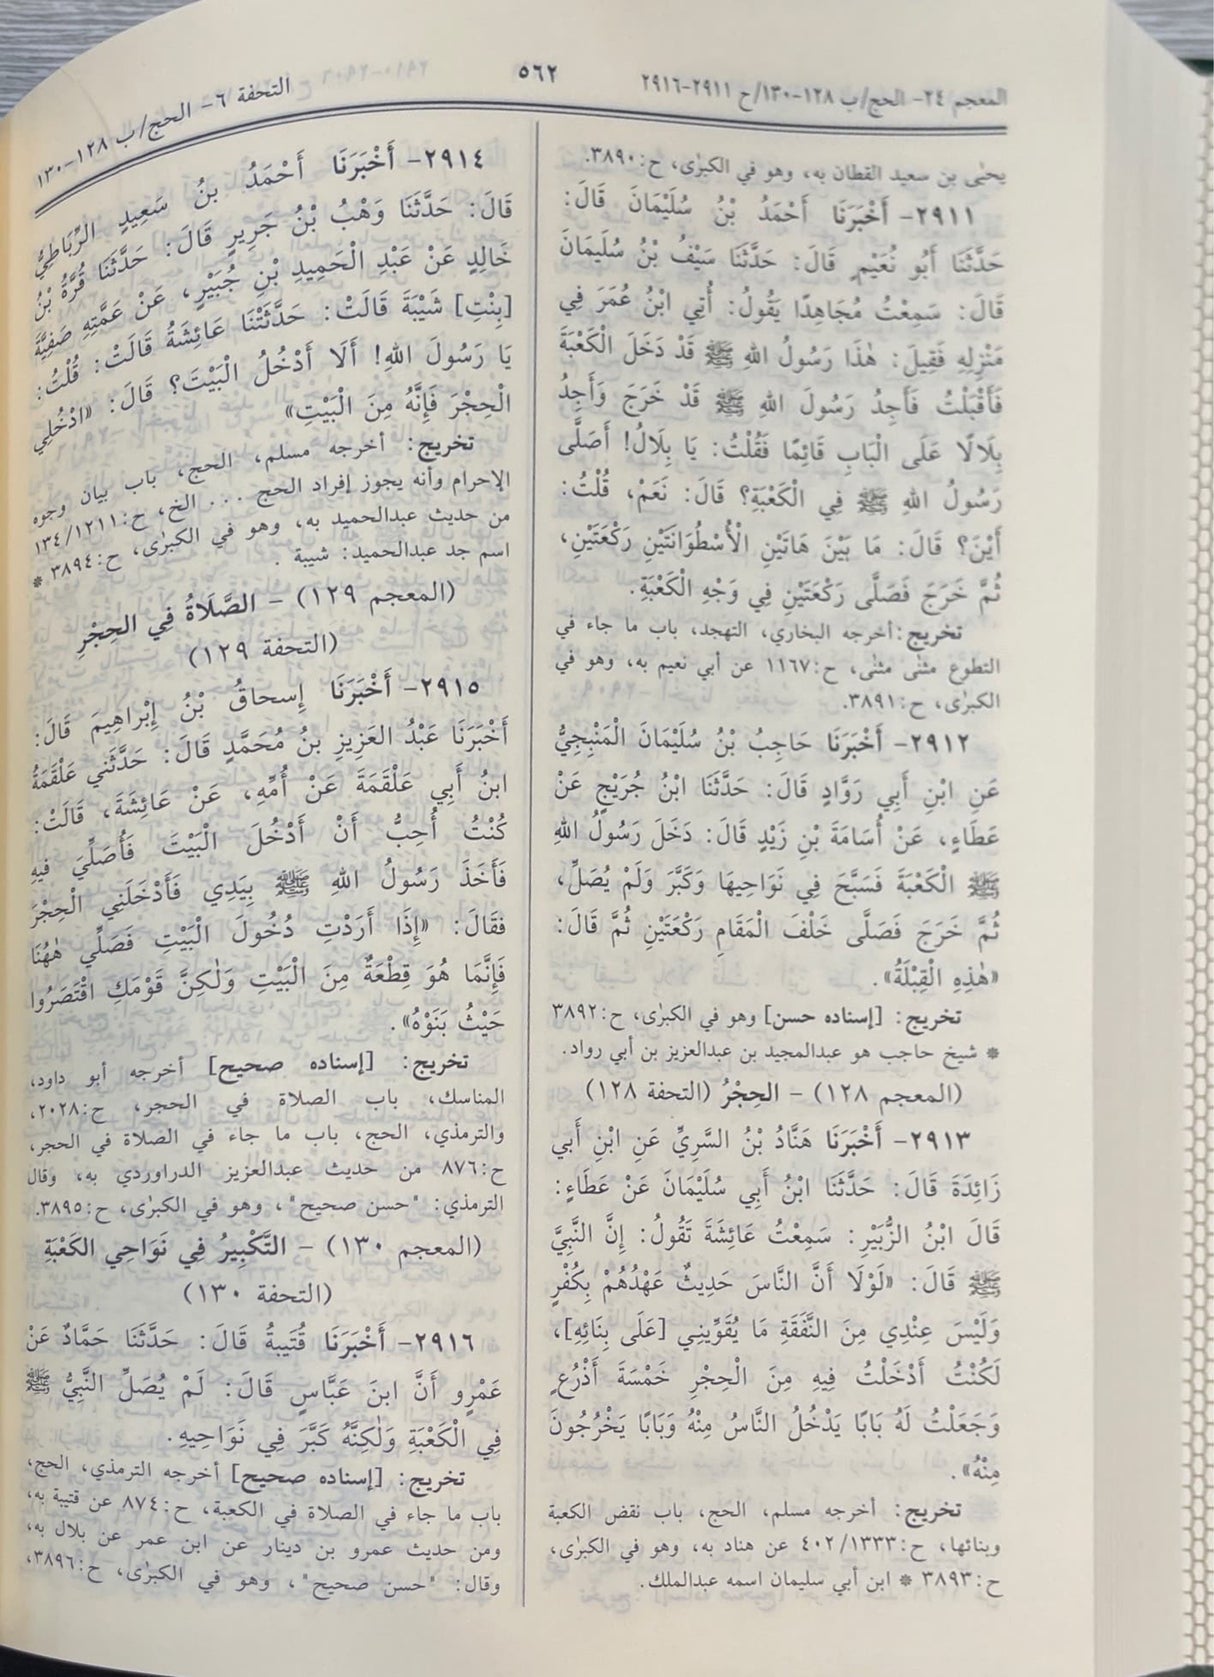 المعجم ٢٤- الحج/ب ١٢٨-١٣٠/ح ٢٩١١-٢٩١٦
٥٦٢
التحفة ٦- الحج/ب ١٢٨-١٣٠
يحيى بن سعيد القطان به، وهو في الكبرٰى، ح:٣٨٩٠.
٢٩١١- أَخْبَرَنَا أَحْمَدُ بْنُ سُلَيْمَانَ قَالَ:
حَدَّثَنَا أَبُو نُعَيْمٍ قَالَ: حَدَّثَنَا سَيْفُ بْنُ سُلَيمَانَ
قَالَ: سَمِعْتُ مُجَاهِدًا يَقُولُ: أُتِي ابْنُ عُمَرَ فِي
مَنْزِلِهِ فَقِيلَ: هٰذَا رَسُولُ اللهِ ﷺ قَدْ دَخَلَ الْكَعْبَةَ
فَأَقْبَلْتُ فَأَجِدُ رَسُولَ اللهِ ﷺ قَدْ خَرَجَ وَأَجِدُ
بِلَالًا عَلَى الْبَابِ قَائِمًا فَقُلْتُ: يَا بِلَالُ! أَصَلَّى
رَسُولُ اللهِ ﷺ فِي الْكَعْبَةِ؟ قَالَ: نَعَمْ، قُلْتُ:
أَيْنَ؟ قَالَ: مَا بَيْنَ هَاتَيْنِ الْأُسْطُوَانَتَيْنِ رَكْعَتَيْنِ،
ثُمَّ خَرَجَ فَصَلَّى رَكْعَتَيْنِ فِي وَجْهِ الْكَعْبَةِ.
تخريج: أخرجه البخاري، التهجد، باب ما جاء في
التطوع مثنى مثنى، ح:١١٦٧ عن أبي نعيم به، وهو في
الكبرٰى، ح:٣٨٩١.
٢٩١٢- أَخْبَرَنَا حَاجِبُ بْنُ سُلَيْمَانَ الْمَنْبِجِيُّ
عَنِ ابْنِ أَبِي رَوَّادٍ قَالَ: حَدَّثَنَا ابْنُ جُرَيْجٍ عَنْ
عَطَاءٍ، عَنْ أُسَامَةَ بْنِ زَيْدٍ قَالَ: دَخَلَ رَسُولُ اللهِ
ﷺ الْكَعْبَةَ فَسَبَّحَ فِي نَوَاحِيهَا وَكَبَّرَ وَلَمْ يُصَلِّ،
ثُمَّ خَرَجَ فَصَلَّى خَلْفَ الْمَقَامِ رَكْعَتَيْنِ ثُمَّ قَالَ:
«هٰذِهِ الْقِبْلَةُ».
تخريج: [إسناده حسن] وهو في الكبرٰى، ح:٣٨٩٢
* شيخ حاجب هو عبدالمجيد بن عبدالعزيز بن أبي رواد.
(المعجم ١٢٨) - الحِجْرُ (التحفة ١٢٨)
٢٩١٣- أَخْبَرَنَا هَنَّادُ بْنُ السَّرِيِّ عَنِ ابْنِ أَبي
زَائِدَةَ قَالَ: حَدَّثَنَا ابْنُ أَبِي سُلَيْمَانَ عَنْ عَطَاءٍ:
قَالَ ابْنُ الزُّبَيْرِ: سَمِعْتُ عَائِشَةَ تَقُولُ: إِنَّ النَّبِيَّ
ﷺ قَالَ: «لَوْلَا أَنَّ النَّاسَ حَدِيثٌ عَهْدُهُمْ بِكُفْرٍ
وَلَيْسَ عِنْدِي مِنَ النَّفَقَةِ مَا يُقَوِّينِي [عَلَى بِنَائِهِ]،
لَكُنْتُ أَدْخَلْتُ فِيهِ مِنَ الْحِجْرِ خَمْسَةَ أَذْرُعٍ
وَجَعَلْتُ لَهُ بَابًا يَدْخُلُ النَّاسُ مِنْهُ وَبَابًا يَخْرُجُونَ
مِنْهُ».
تخريج: أخرجه مسلم، الحج، باب نقض الكعبة
وبنائها، ح:٤٠٢/١٣٣٣ عن هناد به، وهو في الكبرٰى،
ح:٣٨٩٣ * ابن أبي سليمان اسمه عبدالملك.
٢٩١٤- أَخْبَرَنَا أَحْمَدُ بنُ سَعِيدٍ الرِّبَاطِيُّ
قَالَ: حَدَّثَنَا وَهْبُ بْنُ جَرِيرٍ قَالَ: حَدَّثَنَا قُرَّةُ بْنُ
خَالِدٍ عَنْ عَبْدِ الْحَمِيدِ بْنِ جُبَيْرٍ، عَنْ عَمَّتِهِ صَفِيَّةَ
[بِنْتِ] شَيْبَةَ قَالَتْ: حَدَّثَتْنَا عَائِشَةُ قَالَتْ: قُلْتُ:
يَا رَسُولَ اللهِ! أَلَا أَدْخُلُ الْبَيْتَ؟ قَالَ: «ادْخُلِي
الْحِجْرَ فَإِنَّهُ مِنَ الْبَيْتِ»
تخريج: أخرجه مسلم، الحج، باب بيان وجوه
الإحرام وأنه يجوز إفراد الحج ... الخ، ح:١٣٤/١٢١١
من حديث عبدالحميد به، وهو في الكبرٰى، ح:٣٨٩٤ *
اسم جد عبدالحميد: شيبة .
(المعجم ١٢٩) - الصَّلَاةُ فِي الحِجْرِ
(التحفة ١٢٩)
٢٩١٥- أَخْبَرَنَا إِسحاقُ بْنُ إِبْراهِيمَ قَالَ:
أَخْبَرَنَا عَبْدُ العَزِيزِ بنُ مُحَمَّدٍ قَالَ: حَدَّثَني عَلْقَمَةُ
ابنُ أَبِي عَلْقَمَةَ عَنْ أُمِّهِ، عَنْ عَائِشَةَ، قَالَتْ:
كُنْتُ أُحِبُّ أَنْ أَدْخُلَ الْبَيْتَ فَأُصَلِّيَ فِيهِ
فَأَخَذَ رَسُولُ اللهِ ﷺ بِيَدِي فَأَدْخَلَنِي الْحِجْرَ
فَقَالَ: «إِذَا أَرَدْتِ دُخُولَ الْبَيْتِ فَصَلِّي هٰهُنَا
فَإِنَّمَا هُوَ قِطْعَةٌ مِنَ الْبَيْتِ وَلٰكِنَّ قَوْمَكِ اقْتَصَرُوا
حَيْثُ بَنَوْهُ».
تخريج: [إسناده صحيح] أخرجه أبو داود،
المناسك، باب الصلاة في الحجر، ح:٢٠٢٨،
والترمذي، الحج، باب ما جاء في الصلاة في الحجر،
ح:٨٧٦ من حديث عبدالعزيز الدراوردي به، وقال
الترمذي: "حسن صحيح"، وهو في الكبرٰى، ح:٣٨٩٥.
(المعجم ١٣٠) - التَّكْبِيرُ فِي نَوَاحِي الكَعْبَةِ
(التحفة ١٣٠)
٢٩١٦- أَخْبَرَنَا قُتَيبةُ قَالَ: حَدَّثَنَا حَمَّادٌ عَنْ
عَمْرٍو أَنَّ ابنَ عَبَّاسٍ قَالَ: لَمْ يُصَلِّ النَّبِيُّ ﷺ
فِي الْكَعْبَةِ وَلٰكِنَّهُ كَبَّرَ فِي نَوَاحِيهِ.
تخريج: [إسناده صحيح] أخرجه الترمذي، الحج،
باب ما جاء في الصلاة في الكعبة، ح:٨٧٤ عن قتيبة به،
ومن حديث عمرو بن دينار عن ابن عمر عن بلال به،
وقال: "حسن صحيح"، وهو في الكبرٰى، ح:٣٨٩٦،